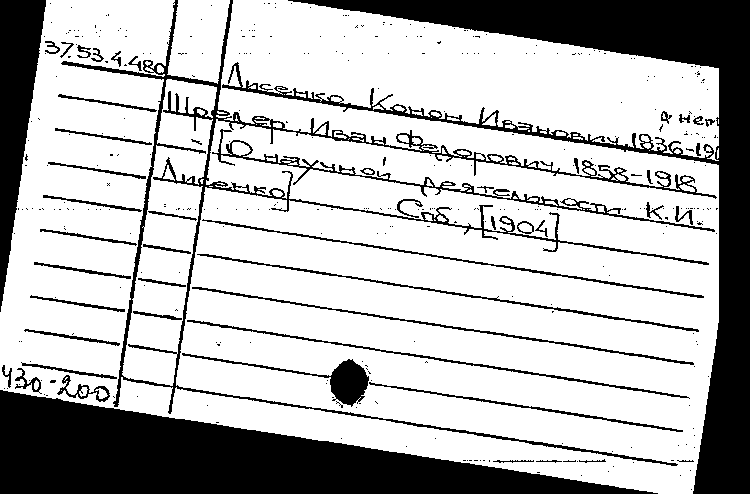 37.53.4.480
Лисенко, Конон Иванович, 1836-190
Шредер, Иван Федорович, 1858-1918
[О научной деятельности К.И.
Лисенко] Спб., [1904]
430-200